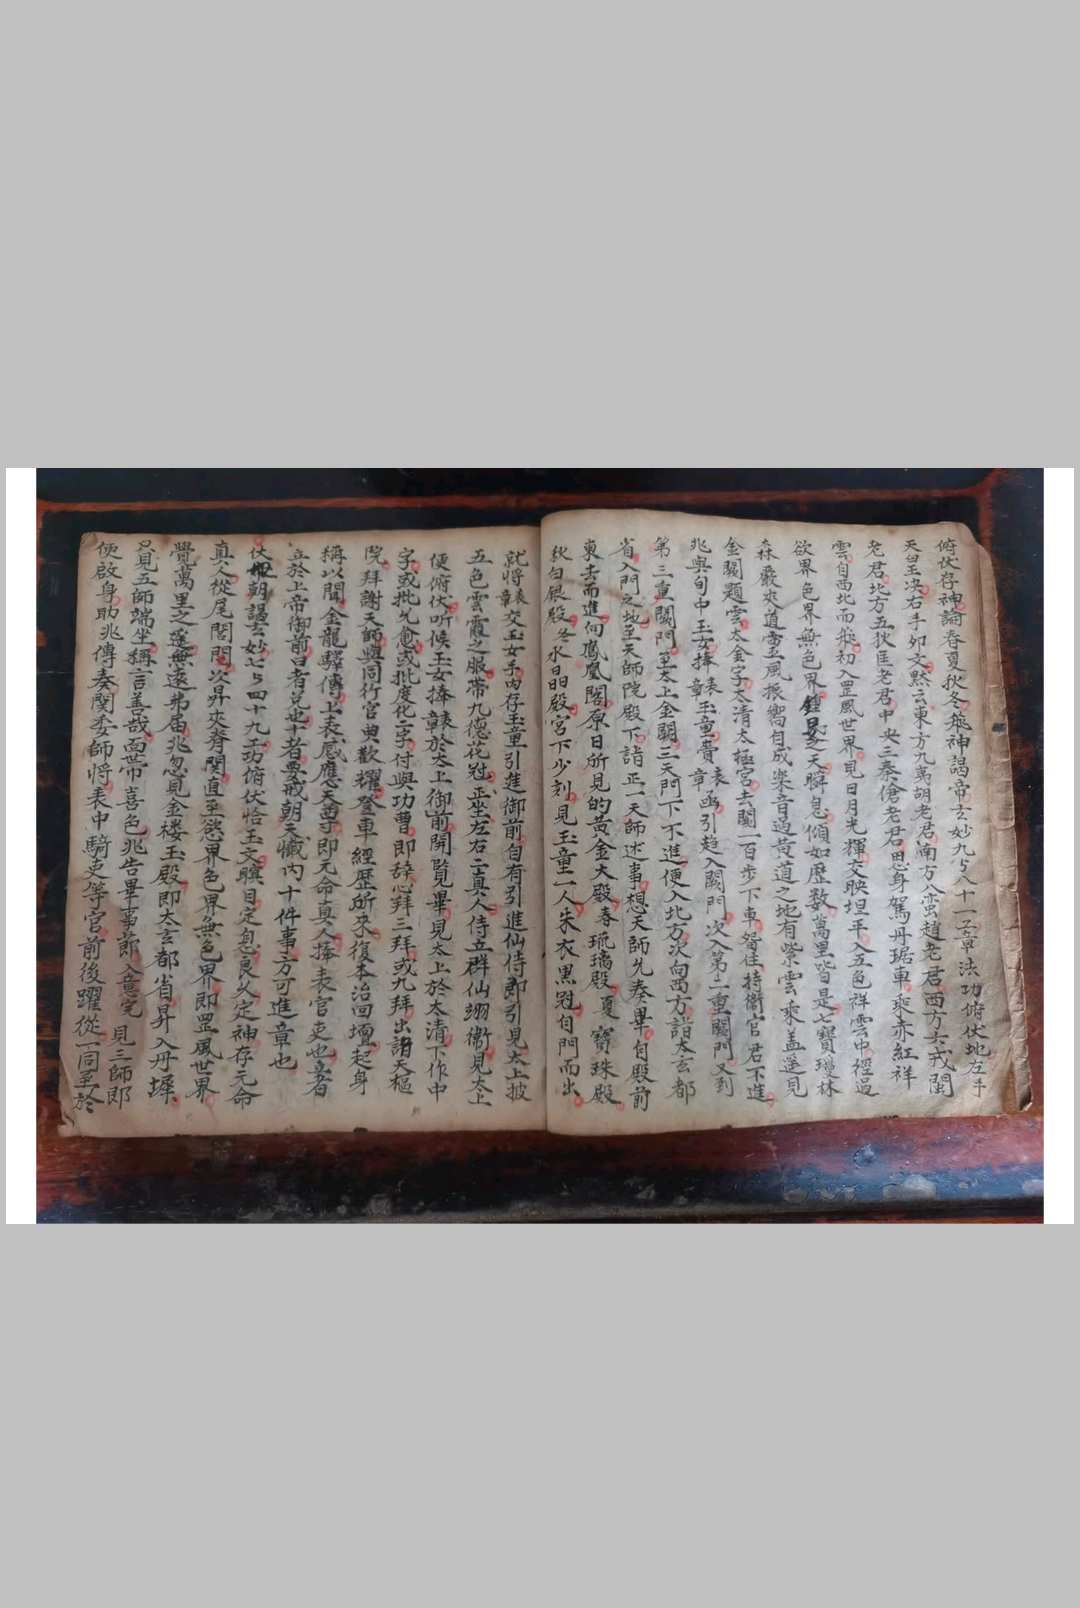 俯伏存神詞春夏秋冬飛神謁帝玄妙九五八十一字草法功俯伏地左手
天罡决右手卯文默云東方九夷胡老君南方八蛮越老君西方六戎閏
老君北方五狄匡老君中央三秦傖老君思身駕丹琚車乘赤紅祥
雲自西北而飛初入罡風世界見日月光輝交映坦平入五色祥雲中經過
欲界色界無色界之天瞬息傾如歷数萬里皆是七寶瓊林
森敷夾道雲玉風振響自成樂音過黄道之地有紫雲乘盖遥見
金闕題雲太金字太清太極宮去闕一百步下車留住持衛官君不進
兆與旬中玉女捧表章玉童賫表章函引超入闕門次入第二重闕門又到
第三重闕門至太上金闕三天門下不進便入北方次向西方詣太玄都
省入門之地至天師院殿下詣正一天師述事想天師先奏畢自殿前
東去而進向鳳凰閣原日所見的黄金大殿春琉璃殿夏寶珠殿
秋白銀殿冬水晶殿宮下少刻見玉童一人朱衣黒冠自門而出
就將表章交玉女手内存玉童引進御前自有引進仙侍即引見太上披
五色雲霞之服帶九德花冠正坐左右二真人侍立群仙翊衛見太上
便俯伏听候玉女捧章表於太上御前開覧畢見太上於太清下作中
字或批允愈或批度化二字付與功曹即辞心拜三拜或九拜出詣天樞
院拜謝天師與同行官典歡耀登車經歴所來復本治回壇起身
稱以聞金龍驛傳上表感應天尊即元命真人捧表官吏也章者
立於上帝御前曰者兑也十者要戒朝天懺内十件事方可進章也
伏朝謁玄妙七五四十九字功俯伏恰玉文瞑目定息良久定神存元命
真人從尾閭門次昇夾脊関直至慾界色界無色界即罡風世界
覺萬里之遥無遠弗届兆忽見金楼玉殿即大玄都省昇入丹墀
只見五師端坐稱言善哉面帯喜色兆告畢事即入意完見三師即
便啟身助兆傳奏関委師將表中騎吏等官前後躍從一同至於